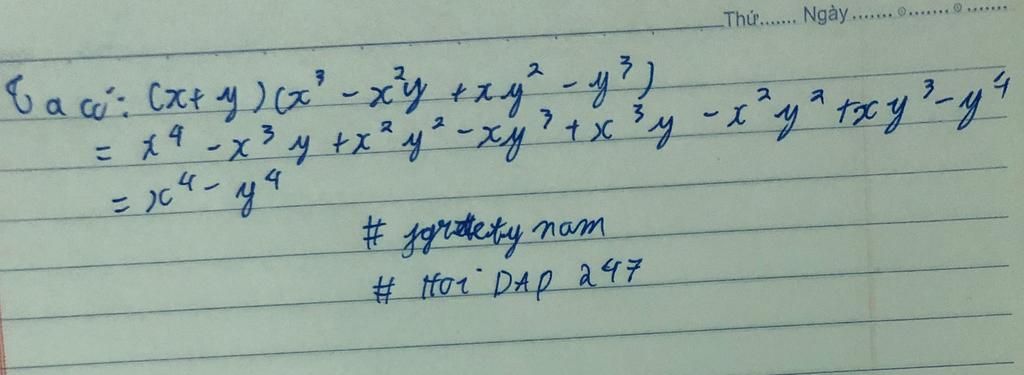 Thứ....... Ngày .......o.......o.......
Ta có: (x+y)(x³ - x²y + xy² - y³)
= x⁴ - x³y + x²y² - xy³ + x³y - x²y² + xy³ - y⁴
= x⁴ - y⁴
# nam
# Hoi DAP 247